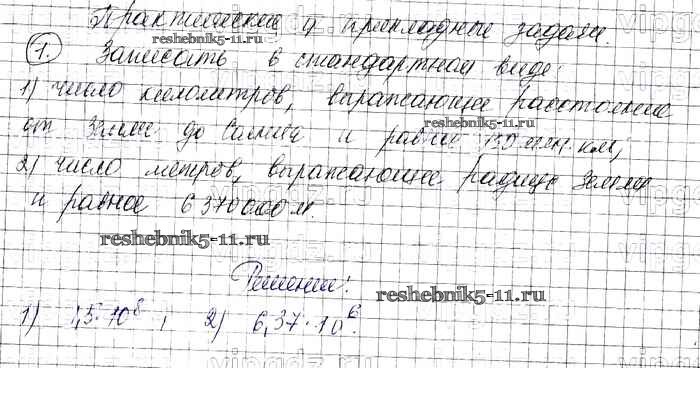 Практические и прикладные задачи.
reshebnik5-11.ru
1. Записать в стандартном виде:
1) число километров, выражающее расстояние
от Земли до Солнца и равное 150 млн. км;
2) число метров, выражающее радиус Земли
и равное 6 370 000 м.
reshebnik5-11.ru
Решение:
reshebnik5-11.ru
1) 1,5·10⁸; 2) 6,37·10⁶.
vipgdz.ru